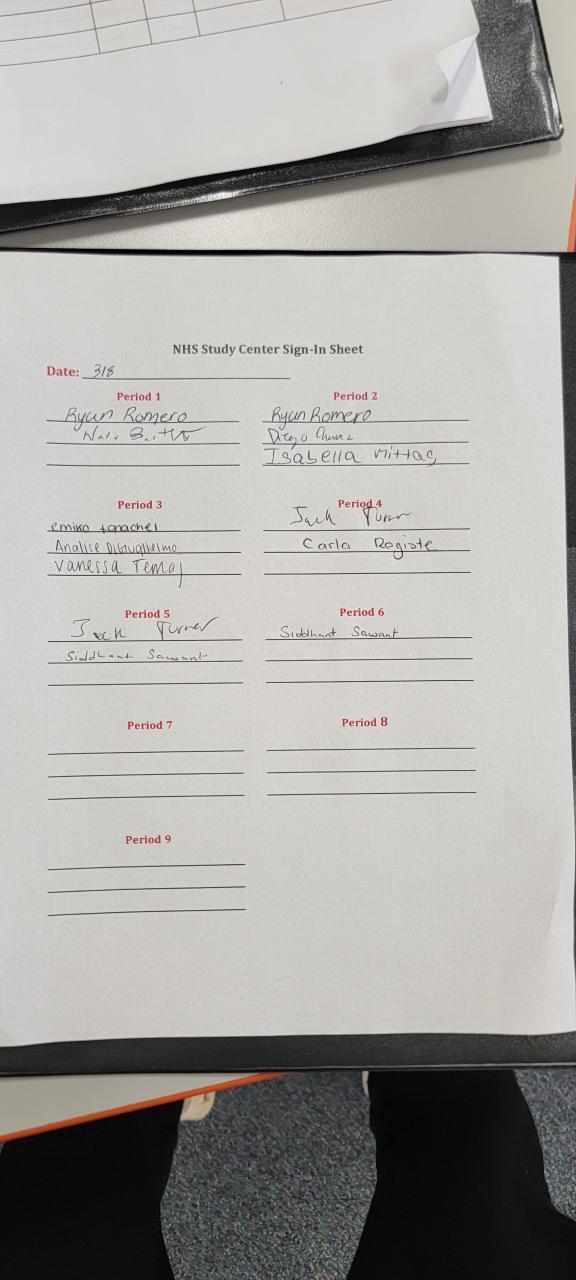 NHS Study Center Sign-In Sheet
Date: 3/8
Period 1
Ryan Romero
Period 2
Ryan Romero
Diego
Isabella Mittag
Period 3
emiko
Analise DiGuglielmo
Vanessa Temaj
Period 4
Jack Turner
Carla Registe
Period 5
Jack Turner
Siddhant Sawant
Period 6
Siddhant Sawant
Period 7
Period 8
Period 9